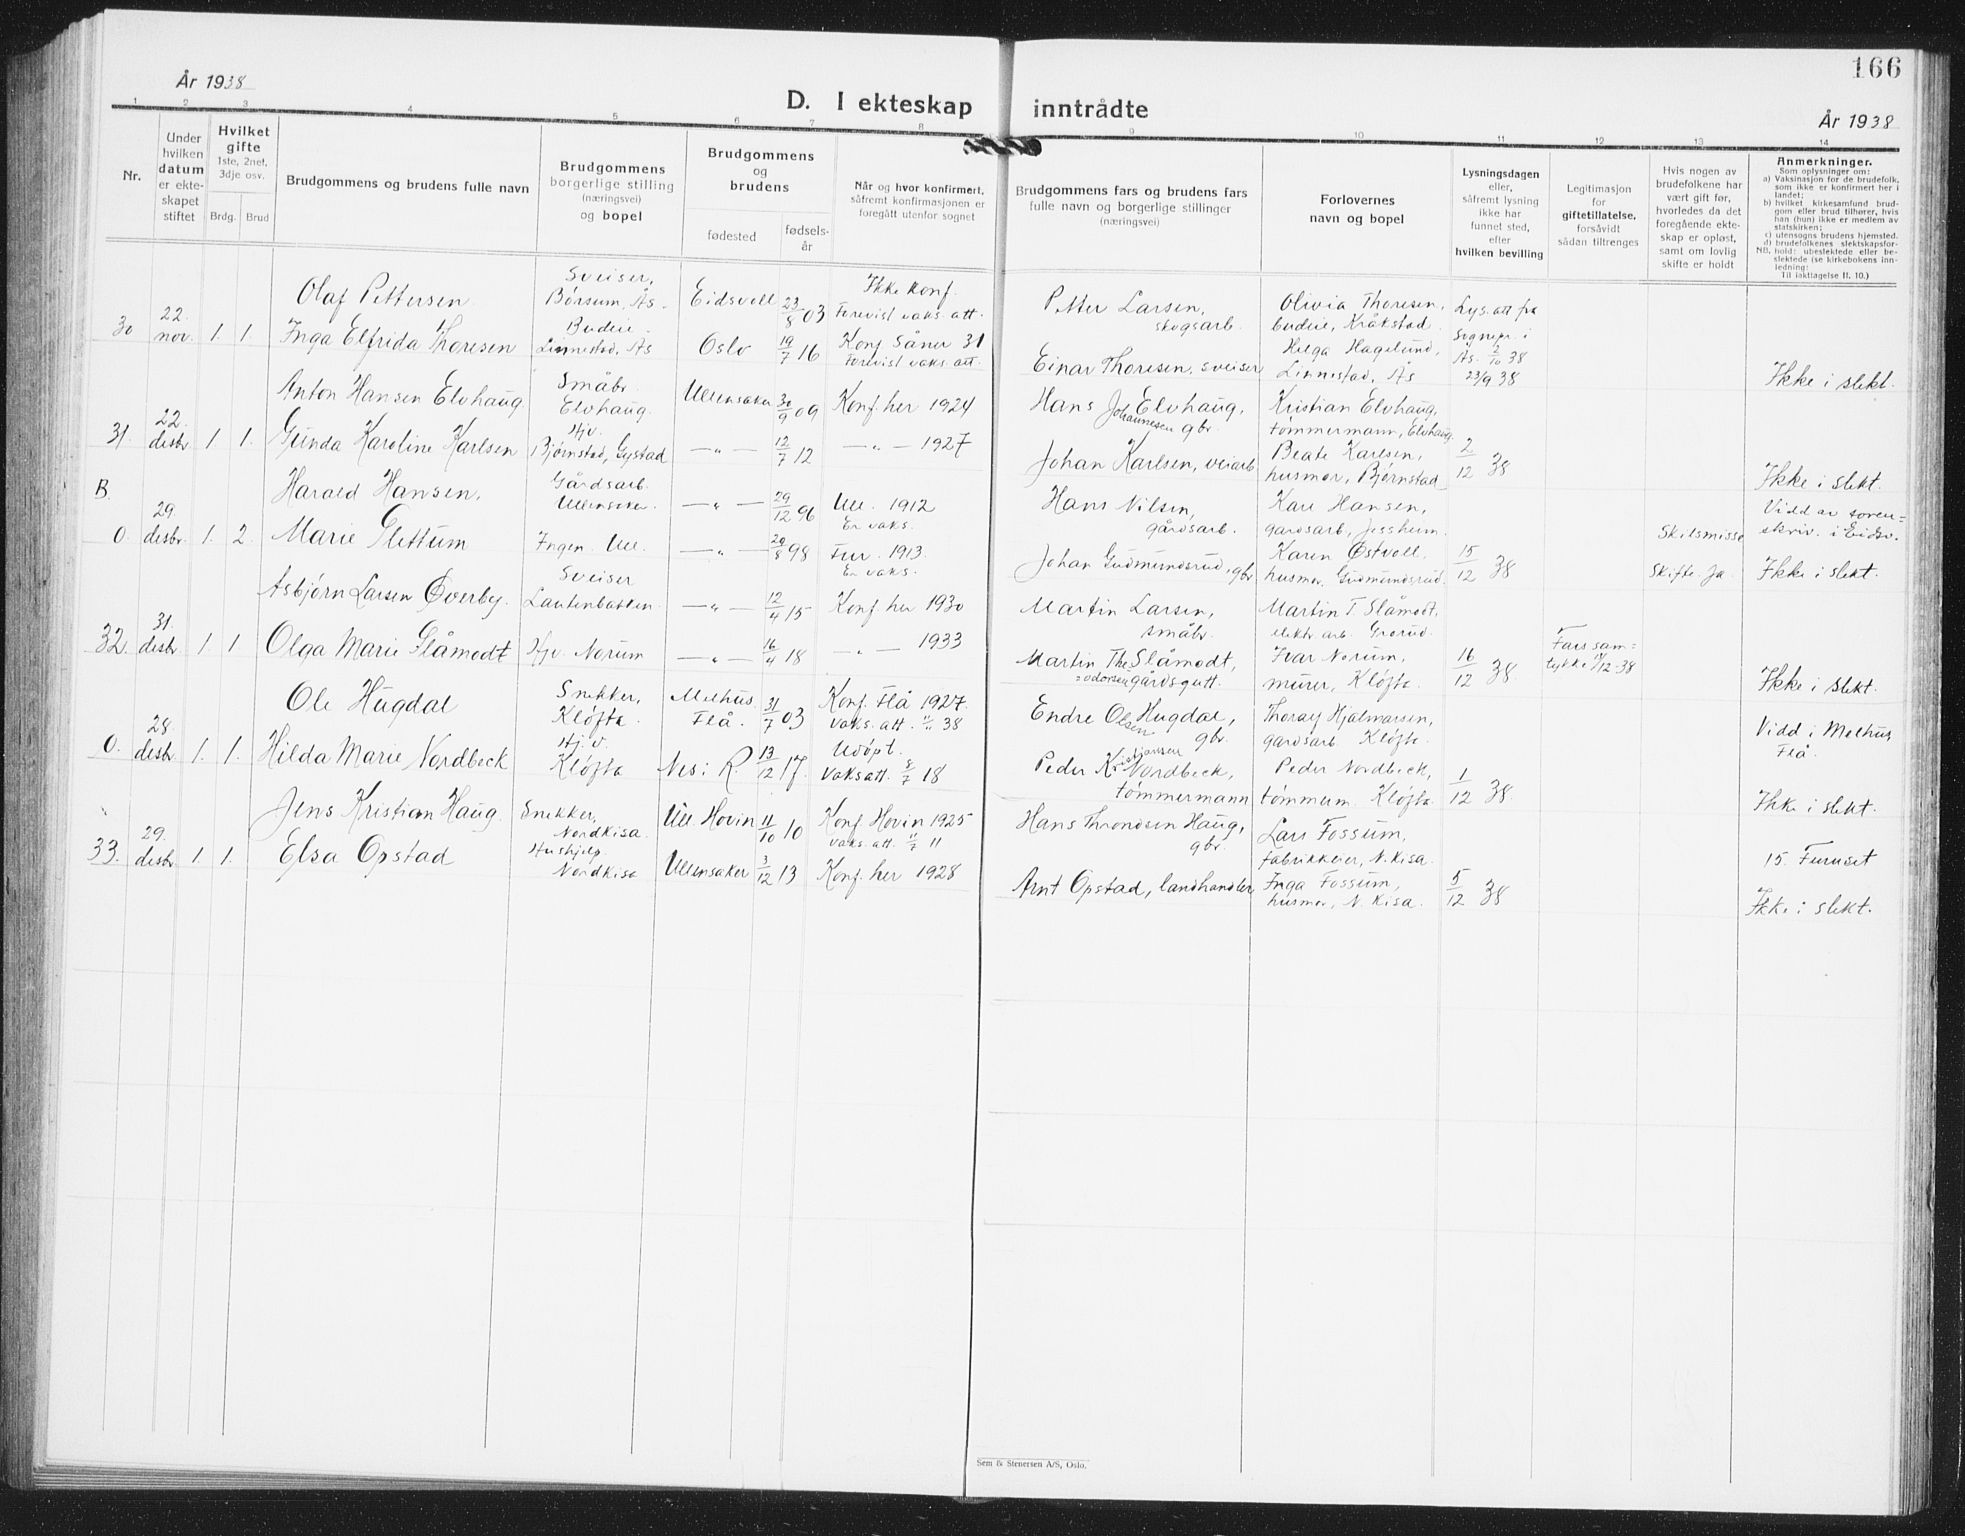 166
År 1938
D. I ekteskap inntrådte
År 1938
1 2 3 4 5 6 7 8 9 10 11 12 13 14
Nr.
Under
hvilken
datum
er ekte-
skapet
stiftet
Hvilket
gifte
1ste, 2net,
3dje osv.
Brdg. Brud
Brudgommens og brudens fulle navn
Brudgommens
borgerlige stilling
(næringsvei)
og bopel
Brudgommens
og
brudens
fødested
fødsels-
år
Når og hvor konfirmert,
såfremt konfirmasjonen er
foregått utenfor sognet
Brudgommens fars og brudens fars
fulle navn og borgerlige stillinger
(næringsvei)
Forlovernes
navn og bopel
Lysningsdagen
eller,
såfremt lysning
ikke har
funnet sted,
efter
hvilken bevilling
Legitimasjon
for
giftetillatelse,
forsåvidt
sådan tiltrenges
Hvis nogen av
brudefolkene har
vært gift før,
hvorledes da det
foregående ekte-
skap er opløst,
samt om lovlig
skifte er holdt
Anmerkninger.
Som oplysninger om:
a) Vaksinasjon for de brudefolk,
som ikke er konfirmert her i
landet;
b) hvilket kirkesamfund brud-
gom eller brud tilhører, hvis
han (hun) ikke er medlem av
statskirken;
c) utensogns brudens hjemsted.
d) brudefolkenes slektskapsfor-
hold: ubeslektede eller be-
slektede (se kirkebokens inn-
ledning:
NB. Til iakttagelse II. 10.)
30
22.
nov.
1. 1.
Olaf Pettersen
Inga Elfrida Thoresen
Sveiser,
Børsum, Ås.
Budeie.
Linnestad, Ås
Eidsvoll 23/8 03
Oslo 19/7 16
Ikke konf.
Forevist vaks. att.
Konf. Såner 31
Forevist vaks. att.
Petter Larsen,
skogsarb.
Einar Thoresen, sveiser
Olivia Thoresen,
budeie, Kråkstad
Helga Hagelund,
Linnestad, Ås
Lys. att. fra
Sognepr. i
Ås. 2/10 38
23/9 38
Ikke i slekt.
31.
22.
desbr.
1. 1.
Anton Hansen Elvhaug
Gunda Karoline Karlsen
Småbr.
Elvhaug.
Hjv.
Bjørnstad, Gystad
Ullensaker 30/9 09
—„— 12/7 12
Konf. her 1924
—„— 1927
Hans Johannesen Elvhaug,
gbr.
Johan Karlsen, veiarb.
Kristian Elvhaug,
tømmermann, Elvhaug.
Beate Karlsen,
husmor, Bjørnstad
2/12 38
Ikke i slekt.
B.
0.
29.
desbr.
1. 2.
Harald Hansen,
Marie Slettum
Gårdsarb.
Ullensaker.
Ingen. Ull.
—„— 29/12 96
—„— 20/8 98
Ull. 1912
Er vaks.
Fur. 1913.
Er vaks.
Hans Nilsen,
gårdsarb.
Johan Gudmundsrud, gbr.
Kare Hansen,
gårdsarb, Jessheim.
Karen Østvoll.
husmor, Gudmundsrud.
15/12 38
Skilsmisse
Skifte. Ja.
Vidd av soren=
skriv. i Eidsv.
Ikke i slekt.
32.
31.
desbr.
1. 1
Asbjørn Larsen Øverby.
Olga Marie Slåmodt
Sveiser
Lautenbakken.
Hjv. Norum
—„— 12/4 15
—„— 16/4 18
Konf. her 1930
—„— 1933
Martin Larsen,
småbr.
Martin The=
=odorsen Slåmodt,
gårdsgutt.
Martin T. Slåmodt,
elektr. arb. Grorud.
Ivar Norum,
murer, Kløfta.
16/12 38.
Fars sam=
tykke /12-38
Ikke i slekt.
0.
28.
desbr.
1. 1.
Ole Hugdal
Hilda Marie Nordbeck
Snekker,
Kløfta.
Hj.v.
Kløfta
Melhus.
Flå. 31/7 03
Nes i R. 13/12 17.
Konf. Flå 1927.
Vaks. att. 38
Udøpt.
Vaks att. 8/7 18
Endre Olsen Hugdal,
gbr.
Peder Kristiansen Nordbeck,
tømmermann
Thoray Hjalmarsen,
gårdsarb. Kløfta.
Peder Nordbeck,
tømmerm. Kløfta.
1/12 38.
Vidd i Melhus
Flå.
Ikke i slekt.
33.
29.
desbr.
1. 1.
Jens Kristian Haug.
Elsa Opstad
Snekker,
Nordkisa.
Hushjelp.
Nordkisa
Ull. Hovin 11/10 10
Ullensaker 3/12 13
Konf. Hovin 1925
Vaks. att. 11/7 11
Konf. her 1928
Hans Throndsen Haug,
gbr.
Arnt Opstad, landhandler
Lars Fossum,
fabrikkeier, N. Kisa.
Inga Fossum,
husmor, N. Kisa.
5/12 38
15. Furuset
Ikke i slekt.
Sem & Stenersen A/S, Oslo.